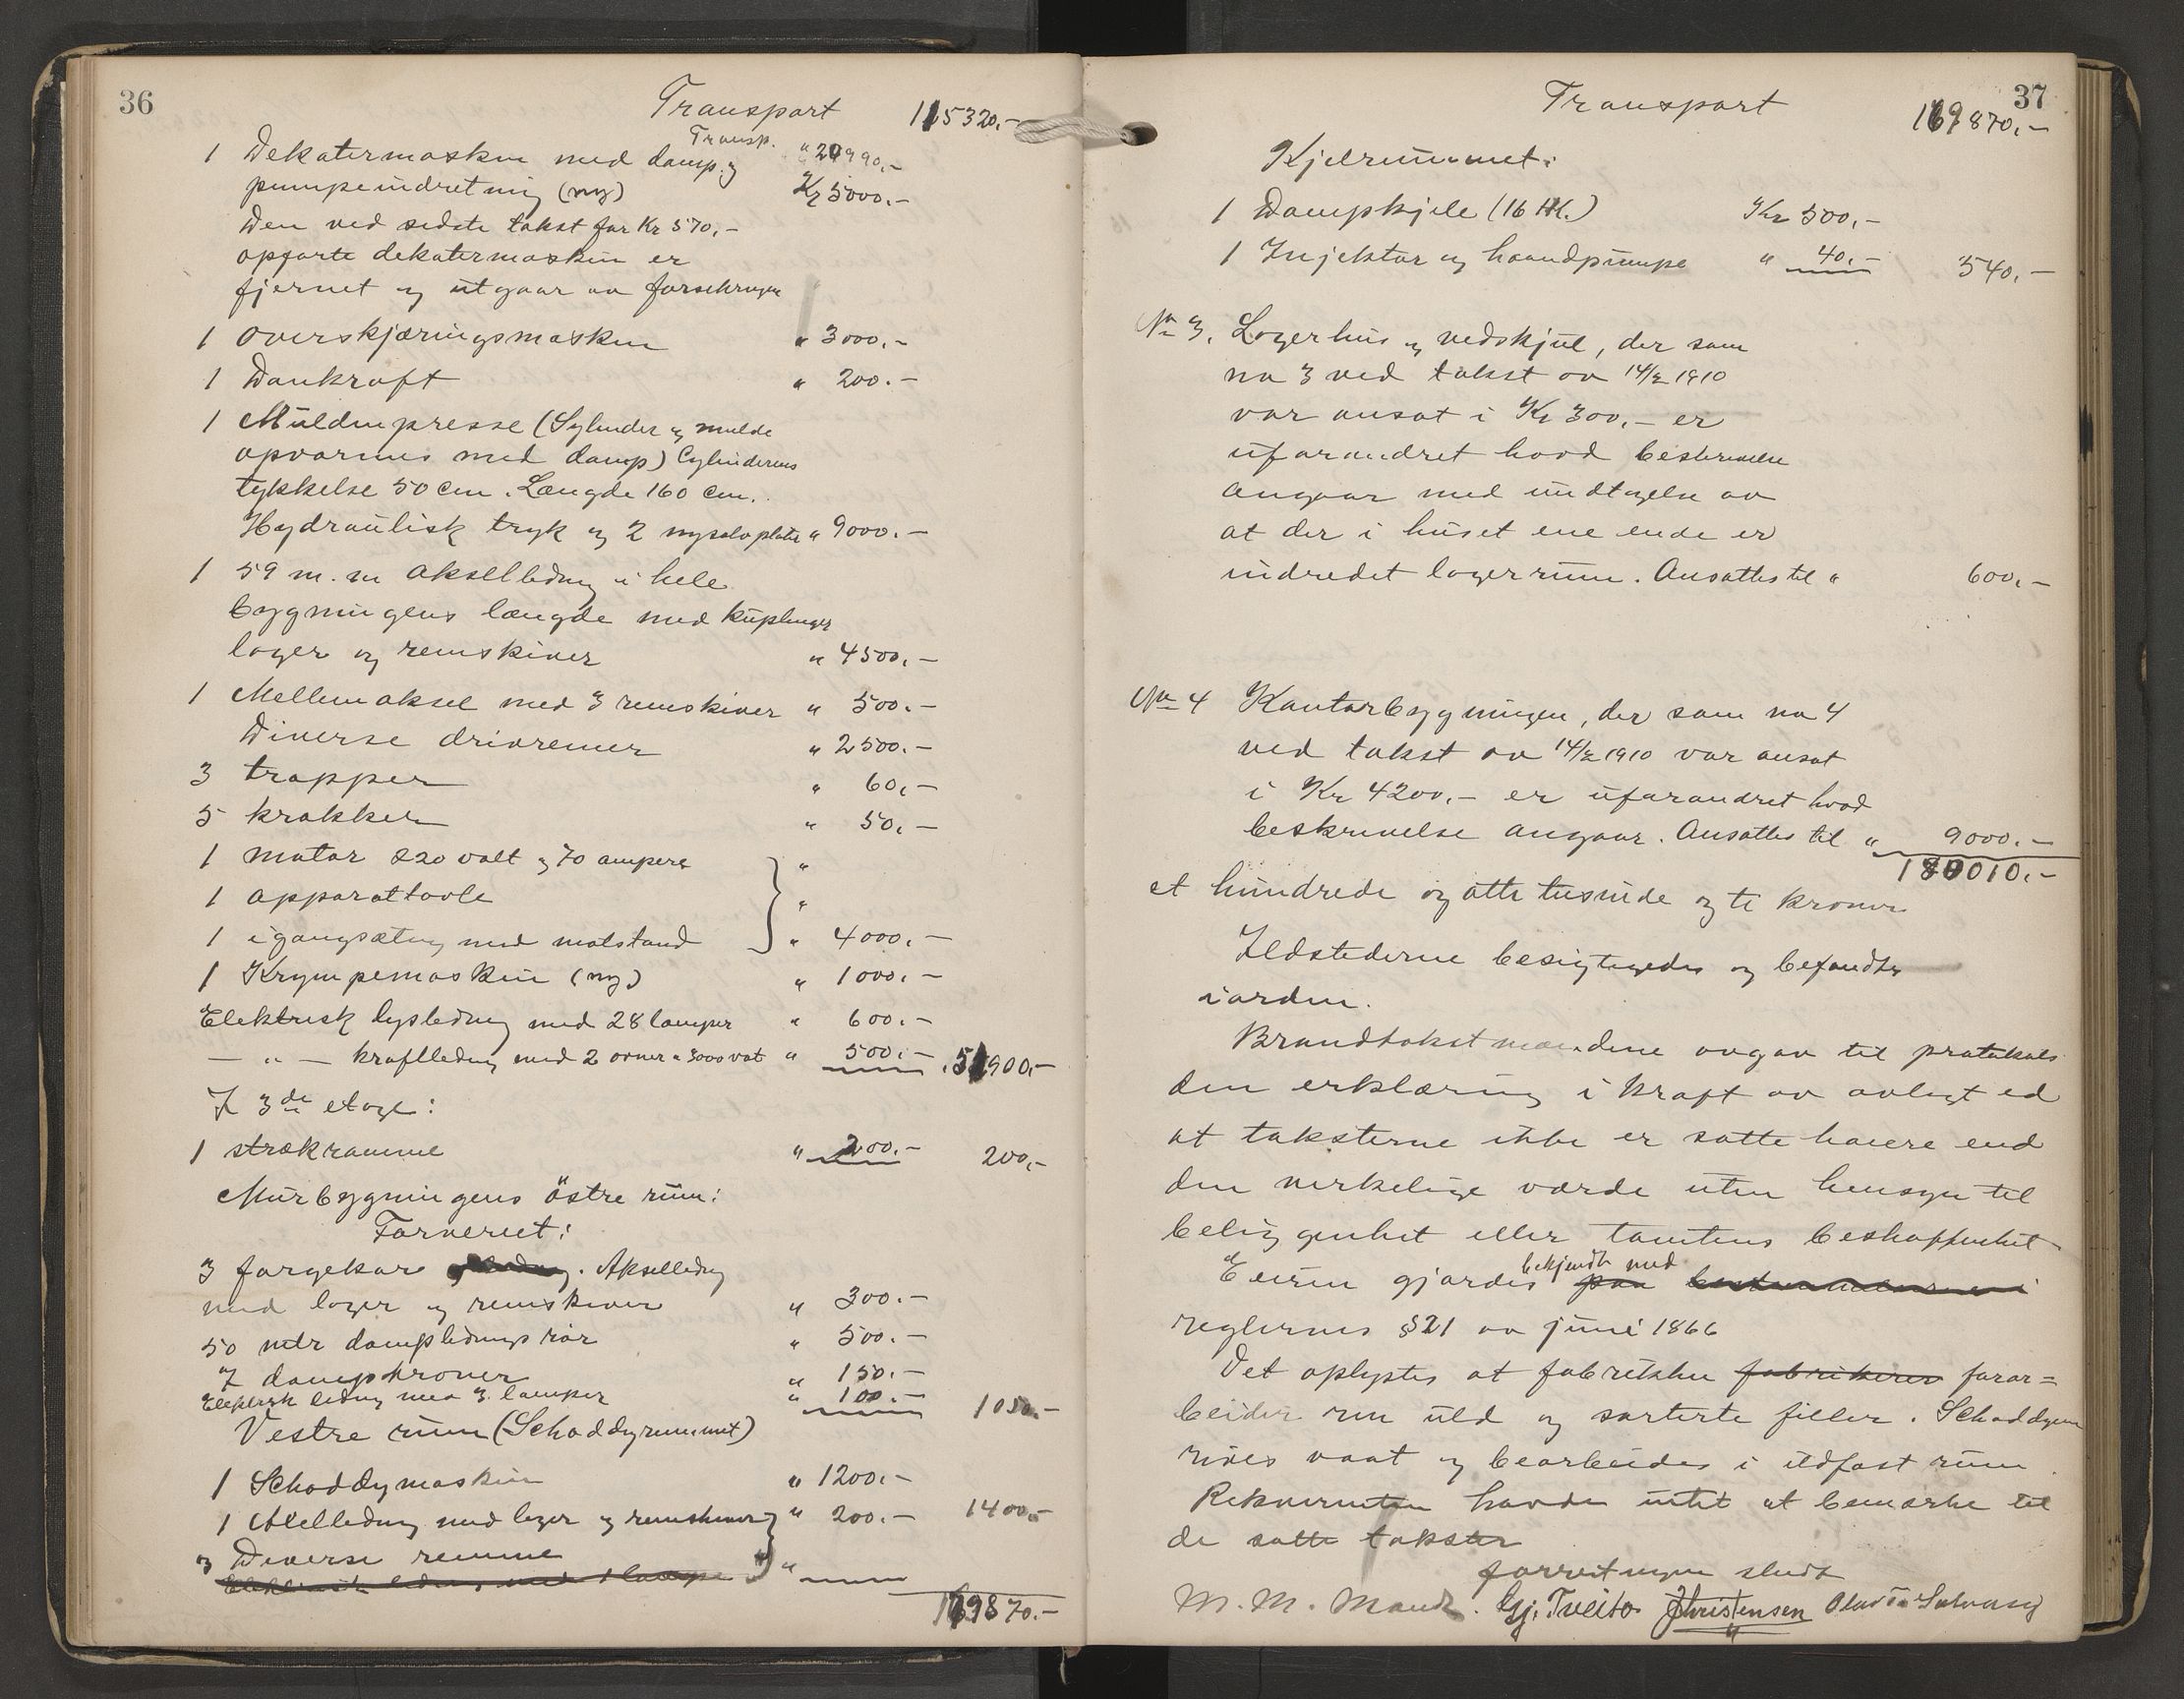 36
Transport 115320.-
Transp. " 20990.-
1 Dekatermaskin med damp og
pumpeindretning (ny) Kr 5000.-
Den ved sidste takst for Kr 570,-
opførte dekatermaskin er
fjernet og utgaar av forsikringen
1 Overskjæringsmaskin " 3000.-
1 Dankraft " 200.-
1 Muldenpresse (Sylinder og mulde
opvarmes med damp) Cylinderens
tykkelse 50 cm. Længde 160 cm.
Hydraulisk tryk og 2 nysølvplater " 9000.-
1 59 m.m akselledning i hele
bygningens længde med kuplinger
lager og remskiver " 4500.-
1 Mellemaksel med 3 remskiver " 500.-
Diverse drivremer " 2500.-
3 trapper " 60,-
5 krakker " 50,-
1 motor 220 volt og 70 ampere "
1 apparattavle "
1 igangsætning med motstand " 4000,-
1 Krympemaskin (ny) " 1000.-
Elektrisk lysledning med 28 lamper " 600.-
- " - kraftledning med 2 ovner a 3000 vat " 500.- 51900.-
I 3de etage:
1 strækramme " 200.- 200,-
Murbygningens östre rum:
Farveriet:
3 fargekar . Akselledning
med lager og remskiver " 300.-
50 mtr dampledningsrør " 500.-
7 dampkroner " 150.-
Elektrisk ledning med 3 lamper " 100.- 1050.-
Vestre rum (Schoddyrummet)
1 Schoddymaskin " 1200.-
1 Akselledning med lager og remskiver " 200.- 1400.-
3 Diverse remme "
Elektrisk ledning med 1 lampe "
169870.-
37
Transport 169870.-
Kjelrummet:
1 Dampkjele (16 HK.) Kr 500,-
1 Injektor og haandpumpe " 40.- 540,-
No 3. Lagerhus og vedskjul, der som
no 3 ved takst av 14/2 1910
var ansat i Kr 300.- er
uforandret hvad beskrivelse
angaar med undtagelse av
at der i huset ene ende er
indredet lagerrum. Ansattes til " 600,-
No 4 Kontorbygningen, der som no 4
ved takst av 14/2 1910 var ansat
i Kr 4200.- er uforandret hvad
beskrivelse angaar. Ansattes til " 9000.-
180010.-
et hundrede og otti tusinde og ti kroner
Ildstederne besigtigedes og befandtes
iorden.
Brandtakstmændene avgav til protokols
den erklæring i kraft av avlagt ed
at taksterne ikke er satte høiere end
den virkelige værde uten hensyn til
beliggenhet eller tomtens beskaffenhet
Eieren gjordes bekjendt med paa
reglernes §21 av juni 1866
Det oplystes at fabrikken fabrikerer foror=
beider ren uld og sorterte filler. Schoddyen
rives vaat og bearbeides i ildfast rum.
Rekvirenten havde intet at bemærke til
de satte takster
forretningen slutt
M. M. Mandt. Gj. Tveito JChristensen Olav T. Sulvasg